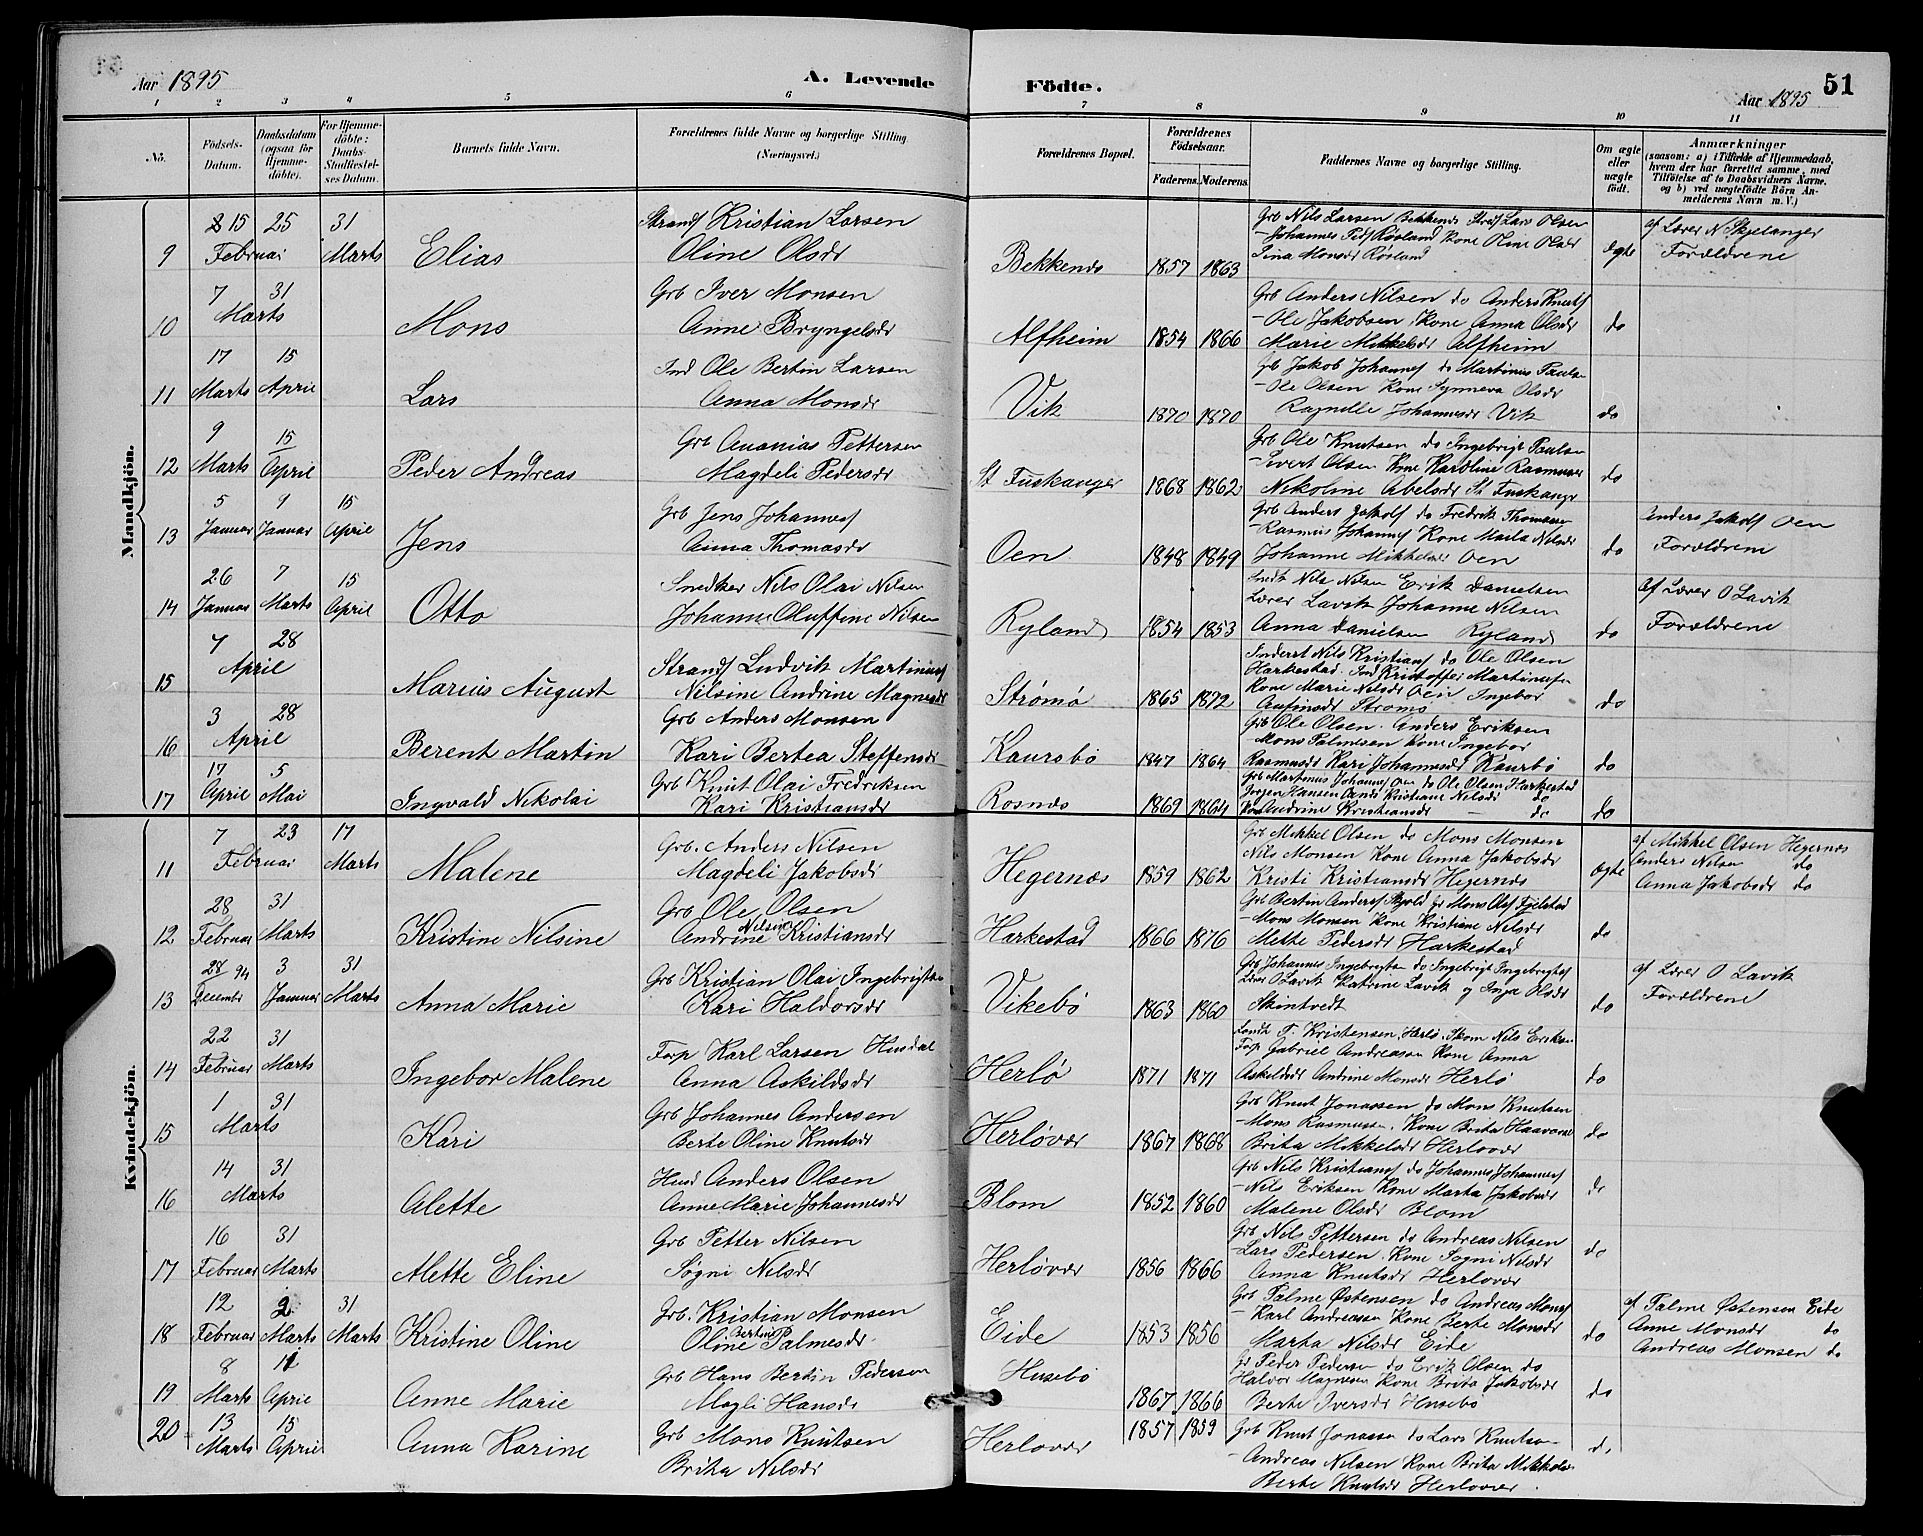 Aar 1895
A. Levende
Födte.
Aar 1895
51
1 2 3 4 5 6 7 8 9 10 11
No.
Födsels-Datum.
Daabsdatum (ogsaa för Hjemmedöbte).
For Hjemmedöbte: Daabs-Stadfæstelses Datum.
Barnets fulde Navn.
Forældrenes fulde Navne og borgerlige Stilling. (Næringsvei.)
Forældrenes Bopæl.
Forældrenes Födselsaar.
Faderens. Moderens.
Faddernes Navne og borgerlige Stilling.
Om ægte eller uægte födt.
Anmærkninger
(saasom: a) i Tilfælde af Hjemmedaab, hvem der har forrettet samme, med Tilföielse af to Daabsvidners Navne, og b) ved uægtefödte Börn Anmelderens Navn m. V.)
Mandkjön.
9 15 Februar 25 31 Marts Elias
Strands Kristian Larsen
Oline Olsdr
Bekkenes 1857 1863
Grb Nils Larsen Bekkenes Lars Olsen
Johannes Røsland Kone Oline Olsdr
Sina Monsdr Røsland
ægte
af Lærer N Skjelanger
Forældrene
10 7 31 Marts Mons
Grb Iver Monsen
Anne Bryngelsdr
Alfheim 1854 1866
Grb Anders Nilsen do Anders Knuts
Ole Jakobsen Kone Anna Olsdr
Marie Mikkelsdr Alfheim
do
11 17 Marts 15 April Lars
Ind Ole Bertin Larsen
Anna Monsdr
Vik 1870 1870
Grb Jakob Johannes do Martinus Pauls
Ole Olsen Kone Synneva Olsdr
Ragnelle Johannesdr Vik
do
12 9 Marts 15 April Peder Andreas
Grb Ananias Pettersen
Magdeli Pedersdr
St Fuskanger 1868 1862
Grb Ole Knutsen do Ingebrigt Paulsen
Sivert Olsen Kone Karoline Rasmusdr
Nikoline Abelsdr St Fuskanger
do
13 5 Januar 9 Januar 15 April Jens
Grb Jens Johannes
Anna Thomasdr
Oen 1848 1849
Grb Anders Jakobs do Fredrik Thomasen
Rasmus Johannes Kone Marta Nilsdr
Johanne Mikkelsdr Oen
do
Anders Jakobs Oen
Forældrene
14 26 Januar 7 Marts 15 April Otto
Snedker Nils Olai Nilsen
Johanne Oluffine Nilsen
Ryland 1854 1853
Snedk Nils Nilsen Erik Danielsen
Lærer Lavik Johanne Nilsen
Anna Danielsen Ryland
do
af Lærer O Lavik
Forældrene
15 7 28 April Marius August
Strands Ludvik Martinius
Nilsine Andrine Magnesdr
Strømø 1865 1872
Nils Kristians do Ole Olsen
Harkestad. Ind Kristoffer Martinus
Kone Marie Nilsdr Oen Ingebor
Strømø
do
16 3 28 April Berent Martin
Grb Anders Monsen
Kari Bertea Steffensdr
Kaursbø 1847 1864
Grb Ole Olsen. Anders Eriksen
Mons Palmesen Kone Ingebor
Rasmusdr Kari Johannesdr Kaursbø
do
17 17 April 5 Mai Ingvald Nikolai
Grb Knut Olai Fredriksen
Kari Kristiansdr
Rosnes 1869 1864
Grb Martinus Johannes Oen do Ole Olsen Harkestad
Jørgen Hansen Kristiane Nilsdr do
Kone Andrine Kristiansdr do
do
Kvindekjön.
11 7 23 Februar 17 Marts Malene
Grb. Anders Nilsen
Magdeli Jakobsdr
Hegernæs 1859 1862
Grb Mikkel Olsen do Mons Monsen
Nils Monsen Kone Anna Jakobsdr
Kristi Kristiansdr Hegernæs
ægte
af Mikkel Olsen Hegernæs
Anders Nilsen do
Anna Jakobsdr do
12 28 Februar 31 Marts Kristine Nilsine
Grb Ole Olsen
Andrine Nilsine Kristiansdr
Harkestad 1866 1876
Grb Bertin Anders Skjold Gr Mons Ols
Mons Monsen Kone Kristiane Nilsdr
Mette Pedersdr Harkestad
do
13 28/94 Decembr 3 Januar 31 Marts Anna Marie
Grb Kristian Olai Ingebrigtsen
Kari Haldorsdr
Vikebø 1863 1860
Grb Johannes Ingebrigtsen do Ingebrigt Ingebrigts
Lærer O Lavik Katrine Lavik og Inga Olsdr
Skintvedt
do
af Lærer O Lavik
Forældrene
14 22 Februar 31 Marts Ingebor Malene
Forp Karl Larsen Husdal
Anna Askildsdr
Herlø 1871 1871
Landh T. Kristensen Herlø. Skom Nils Eriksen
Forp Gabriel Andreassen Kone Anna
Askildsdr Andrine Monsdr Herlø
do
15 1 31 Marts Kari
Grb Johannes Andersen
Berte Oline Knutsdr
Herløvær 1867 1868
Grb Knut Jonassen do Mons Knutsen
Mons Rasmussen. Kone Brita Haavorsdr
Brita Mikkelsdr Herlovær
do
16 14 31 Marts Alette
Husd Anders Olsen
Anne Marie Johannesdr
Blom 1852 1860
Grb Nils Kristians do Johannes Johannes
Nils Eriksen Kone Marta Jakobsdr
Malene Olsdr Blom
do
17 16 Februar 31 Marts Alette Eline
Grb Petter Nilsen
Søgni Nilsdr
Herløvær 1856 1866
Grb Nils Pettersen do Andreas Nilsen
Lars Pedersen. Kone Sogni Nilsdr
Anna Knutsdr Herlovær
do
18 12 Februar 2 Marts 31 Marts Kristine Oline
Grb. Kristian Monsen
Oline Bertine Palmesdr
Eide 1853 1856
Grb Palme Østensen do Andreas Mons
Karl Andreassen Kone Berte Monsdr
Marta Nilsdr Eide
do
af Palme Østensen Eide
Anne Monsdr do
Andreas Monsen do
19 8 Marts 11 April Anne Marie
Grb Hans Bertin Pedersen
Magli Hansdr
Husebø 1867 1866
Gr Peder Pedersen do Erik Olsen do
Halvor Magnesen Kone Brita Jakobsdr
Berte Iversdr Husebø
do
20 13 Marts 15 April Anna Karine
Grb Mons Knutsen
Brita Nilsdr
Herlovær 1857 1859
Grb Knut Jonassen do Lars Knutsen
Andreas Nilsen Kone Brita Mikkelsdr
Berte Knutsdr Herlovær.
do